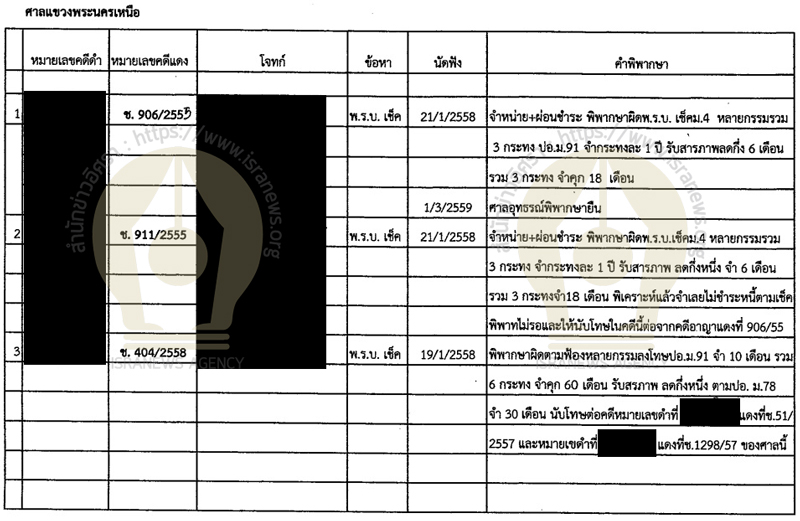 ศาลแขวงพระนครเหนือ
หมายเลขคดีดำ หมายเลขคดีแดง โจทก์ ข้อหา นัดฟัง คำพิพากษา
1 ช. 906/2555 พ.ร.บ. เช็ค 21/1/2558 จำหน่าย+ผ่อนชำระ พิพากษาผิดพ.ร.บ. เช็คม.4 หลายกรรมรวม
3 กระทง ปอ.ม.91 จำกระทงละ 1 ปี รับสารภาพลดกึ่ง 6 เดือน
รวม 3 กระทง จำคุก 18 เดือน
1/3/2559 ศาลอุทธรณ์พิพากษายืน
2 ช. 911/2555 พ.ร.บ. เช็ค 21/1/2558 จำหน่าย+ผ่อนชำระ พิพากษาผิดพ.ร.บ.เช็คม.4 หลายกรรมรวม
3 กระทง จำกระทงละ 1 ปี รับสารภาพ ลดกึ่งหนึ่ง จำ 6 เดือน
รวม 3 กระทงจำ18 เดือน พิเคราะห์แล้วจำเลยไม่ชำระหนี้ตามเช็ค
พิพาทไม่รอและให้นับโทษในคดีนี้ต่อจากคดีอาญาแดงที่ 906/55
3 ช. 404/2558 พ.ร.บ. เช็ค 19/1/2558 พิพากษาผิดตามฟ้องหลายกรรมลงโทษปอ.ม.91 จำ 10 เดือน รวม
6 กระทง จำคุก 60 เดือน รับสรภาพ ลดกึ่งหนึ่ง ตามปอ. ม.78
จำ 30 เดือน นับโทษต่อคดีหมายเลขดำที่ แดงที่ช.51/
2557 และหมายเขดำที่ แดงที่ช.1298/57 ของศาลนี้
สำนักข่าวอิศรา : https://www.isranews.org
ISRANEWS AGENCY
สำนักข่าวอิศรา : https://www.isranews.org
ISRANEWS AGENCY